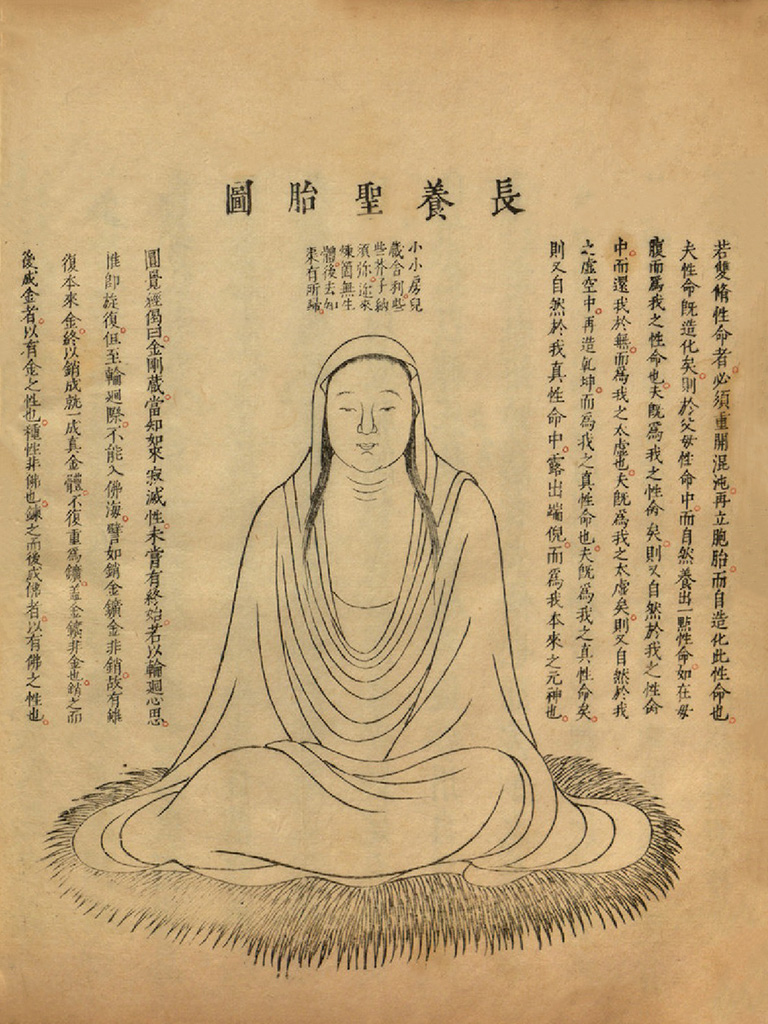 長養聖胎圖
若雙脩性命者必須重開混沌再立胞胎而自造化此性命也
夫性命既造化矣則於父母性命中而自然養出一點性命如在母
腹而爲我之性命也夫既爲我之性命矣則又自然於我之性命
中而還我於無而爲我之太虛也夫既爲我之太虛矣則又自然於我
之虛空中再造乾坤而爲我之真性命也夫既爲我之真性命矣
則又自然於我真性命中露出端倪而爲我本來之元神也
小小房兒
藏舍利些
些芥子納
須弥近來
煉箇無生
體後去如
來有所歸
圓覺經偈曰金剛藏當知如來寂滅性未嘗有終始若以輪迴心思
惟即旋復但至輪迴際不能入佛海譬如銷金鑛金非銷故有雖
復本來金終以銷成就一成真金體不復重爲鑛蓋金鑛非金也銷之而
後成金者以有金之性也種性非佛也鍊之而後成佛者以有佛之性也